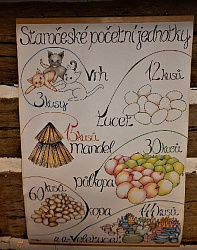 Staročeské početní jednotky
Vrh
3 kusy
12 kusů
Tucet
15 kusů
mandel
30 kusů
půlkopa
60 kusů
kopa
144 kusů
a a Veletucet